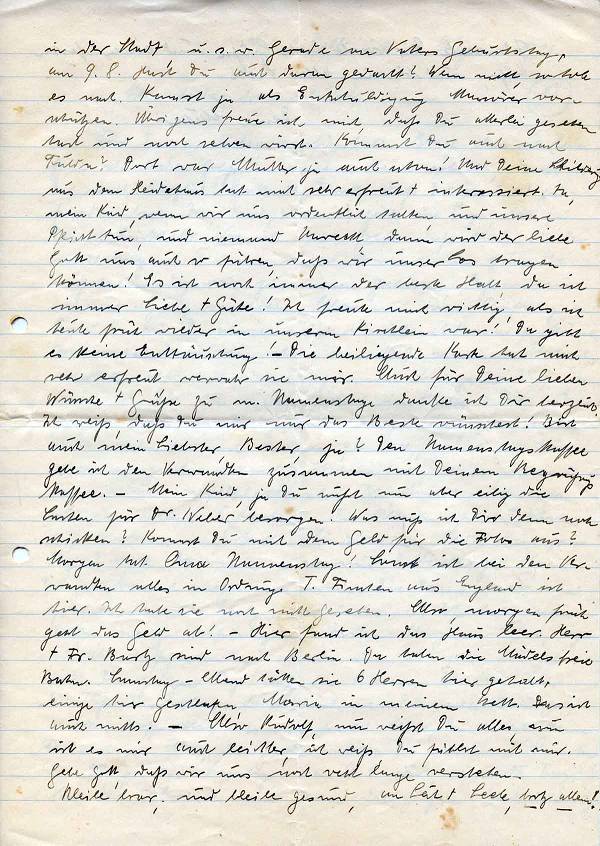 in der Stadt u.s.w. Gerade an Vaters Geburtstag,
am 9.8. Hast Du auch daran gedacht? Wenn nicht, so hole
es nach. Kannst ja als Entschuldigung Manöver vor-
schützen. Übrigens freue ich mich, daß Du allerlei gesehen
hast und noch sehen wirst. Kommst Du auch nach
Fulda? Dort war Mutter ja auch schon! Und Deine
aus dem Heidehaus hat mich sehr erfreut + interessiert. Ja,
mein Kind, wenn wir uns ordentlich halten und unsere
Pflicht tun, und niemand dann wird der liebe
Gott uns auch so führen, daß wir unser Los tragen
können! Es ist noch immer der beste Halt da ist
immer Liebe + Güte! Ich freute mich richtig, als ich
heute früh wieder in unserem Kirchlein war! Da gibt
es keine Enttäuschung! – Die beiliegende Karte hat mich
sehr erfreut verwahr sie mir. Auch für Deine lieben
Wünsche + Grüße zu m. Namenstage danke ich Dir herzlich.
Ich weiß, daß Du mir nur das Beste wünschest! Bist
auch mein Liebster, Bester, ja? Den Namenstagskaffee
gebe ich den Verwandten zusammen mit Deinem
Kaffee. – Mein Kind, ja Du mußt nun aber eilig die
Karten für Dr. Weber besorgen. Was muß ich Dir denn noch
schicken? Kommst Du mit dem Geld für die Fotos aus?
Morgen hat Oma Namenstag! Sonst ist bei den Ver-
wandten alles in Ordnung. T. aus England ist
hier. Ich habe sie noch nicht gesehen. Also, morgen früh
geht das Geld ab! – Hier fand ich das Haus leer. Herr
+ Fr. Bartz sind nach Berlin. Da haben die Mädels freie
Bahn. Samstag-Abend hatten sie 6 Herren hier gehabt,
einige hier geschlafen, Maria in meinem Bett. Das ist
auch nichts. – Also Rudolf, nun weißt Du alles, nun
ist es mir auch leichter, ich weiß, Du fühlst mit mir.
Gebe Gott, daß wir uns noch recht lange verstehen.
Bleibe brav, und bleibe gesund, an Leib + Seele, trotz allem!